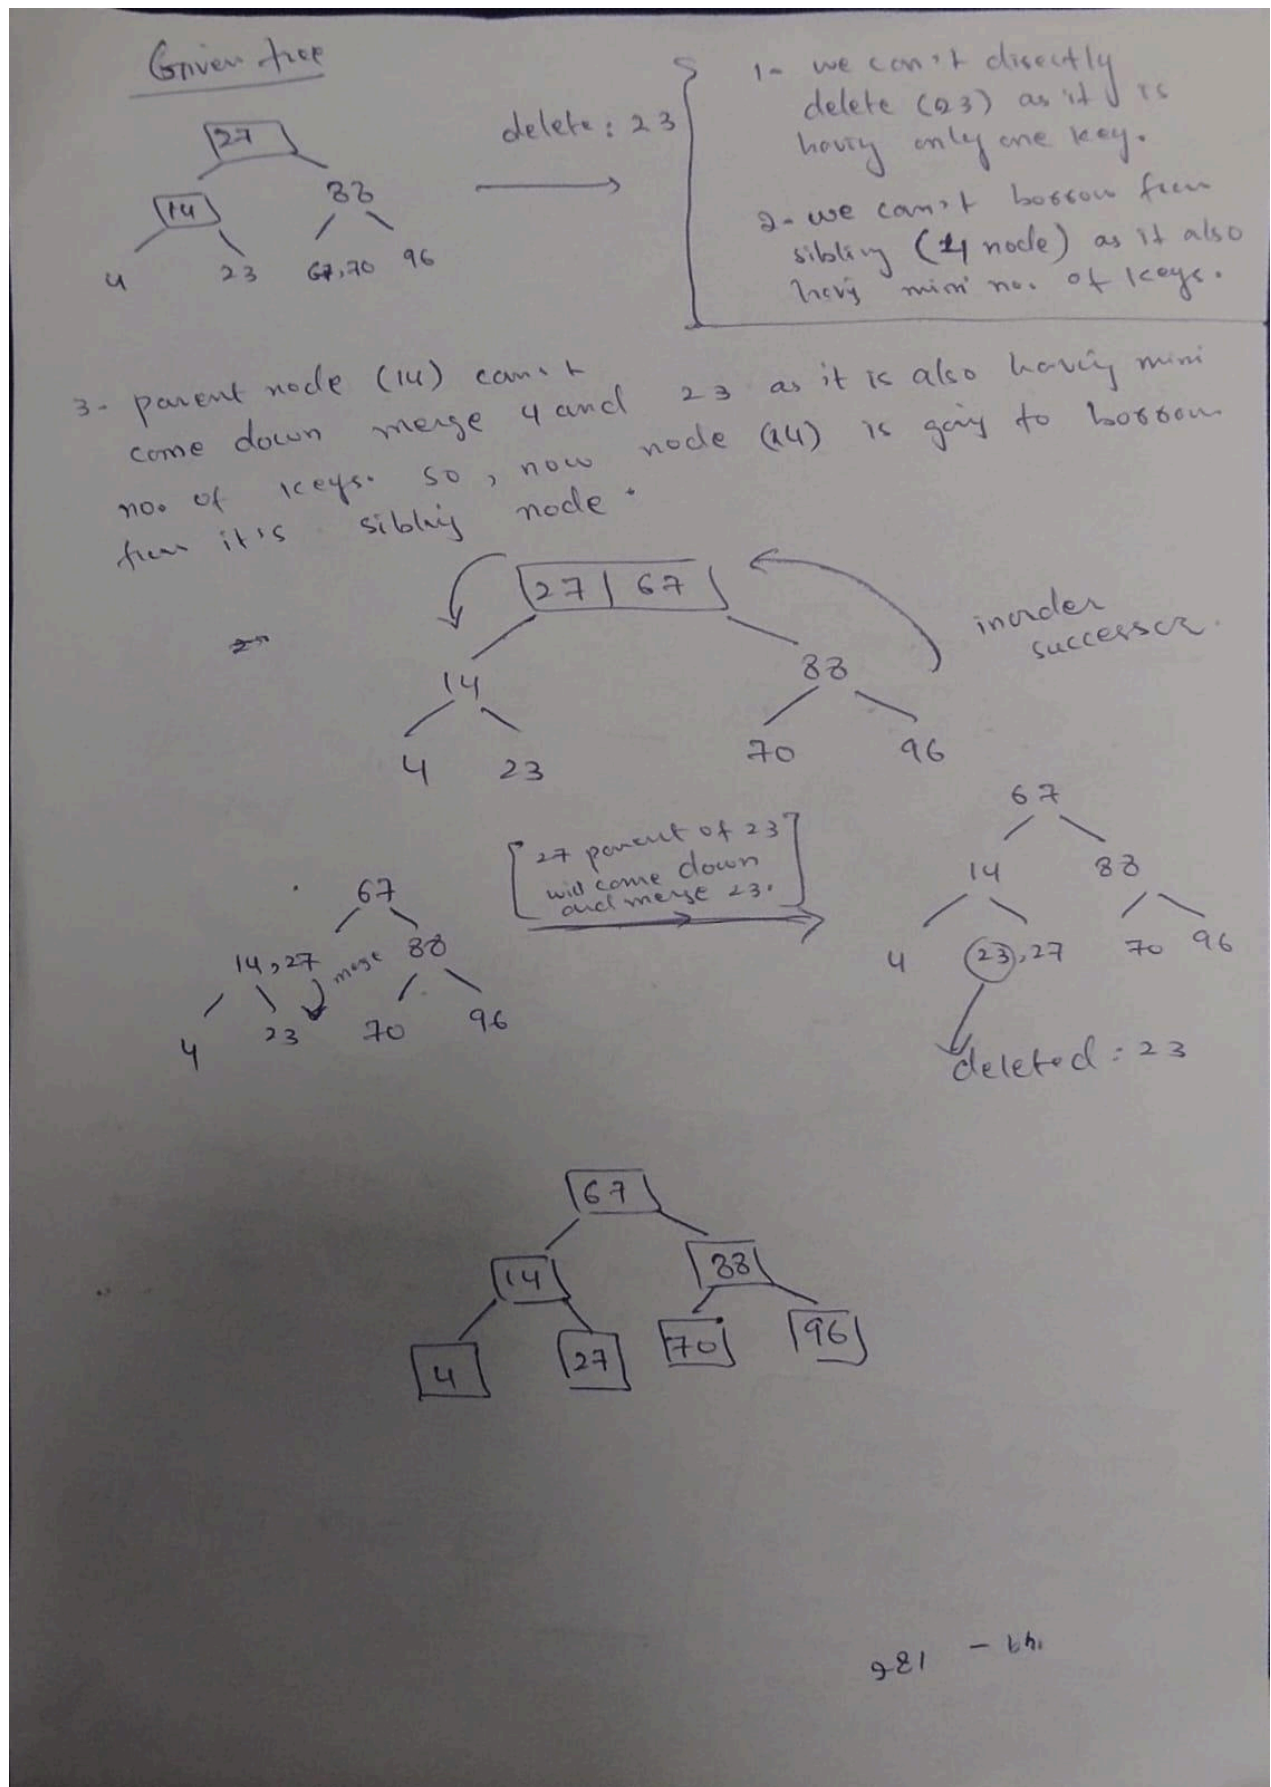 Given tree
27
14 88
4 23 67,70 96
delete: 23
1- we can't directly
delete (23) as it is
having only one key.
2- we can't borrow from
sibling (4 node) as it also
having mini no. of keys.
3- parent node (14) can't
come down merge 4 and 23 as it is also having mini
no. of keys. so, now node (14) is going to borrow
from it's sibling node.
27 | 67
14 88
4 23 70 96
inorder
successor.
67
14,27 merge 88
4 23 70 96
27 parent of 23
will come down
and merge 23.
67
14 88
4 23,27 70 96
deleted: 23
67
14 88
4 27 70 96